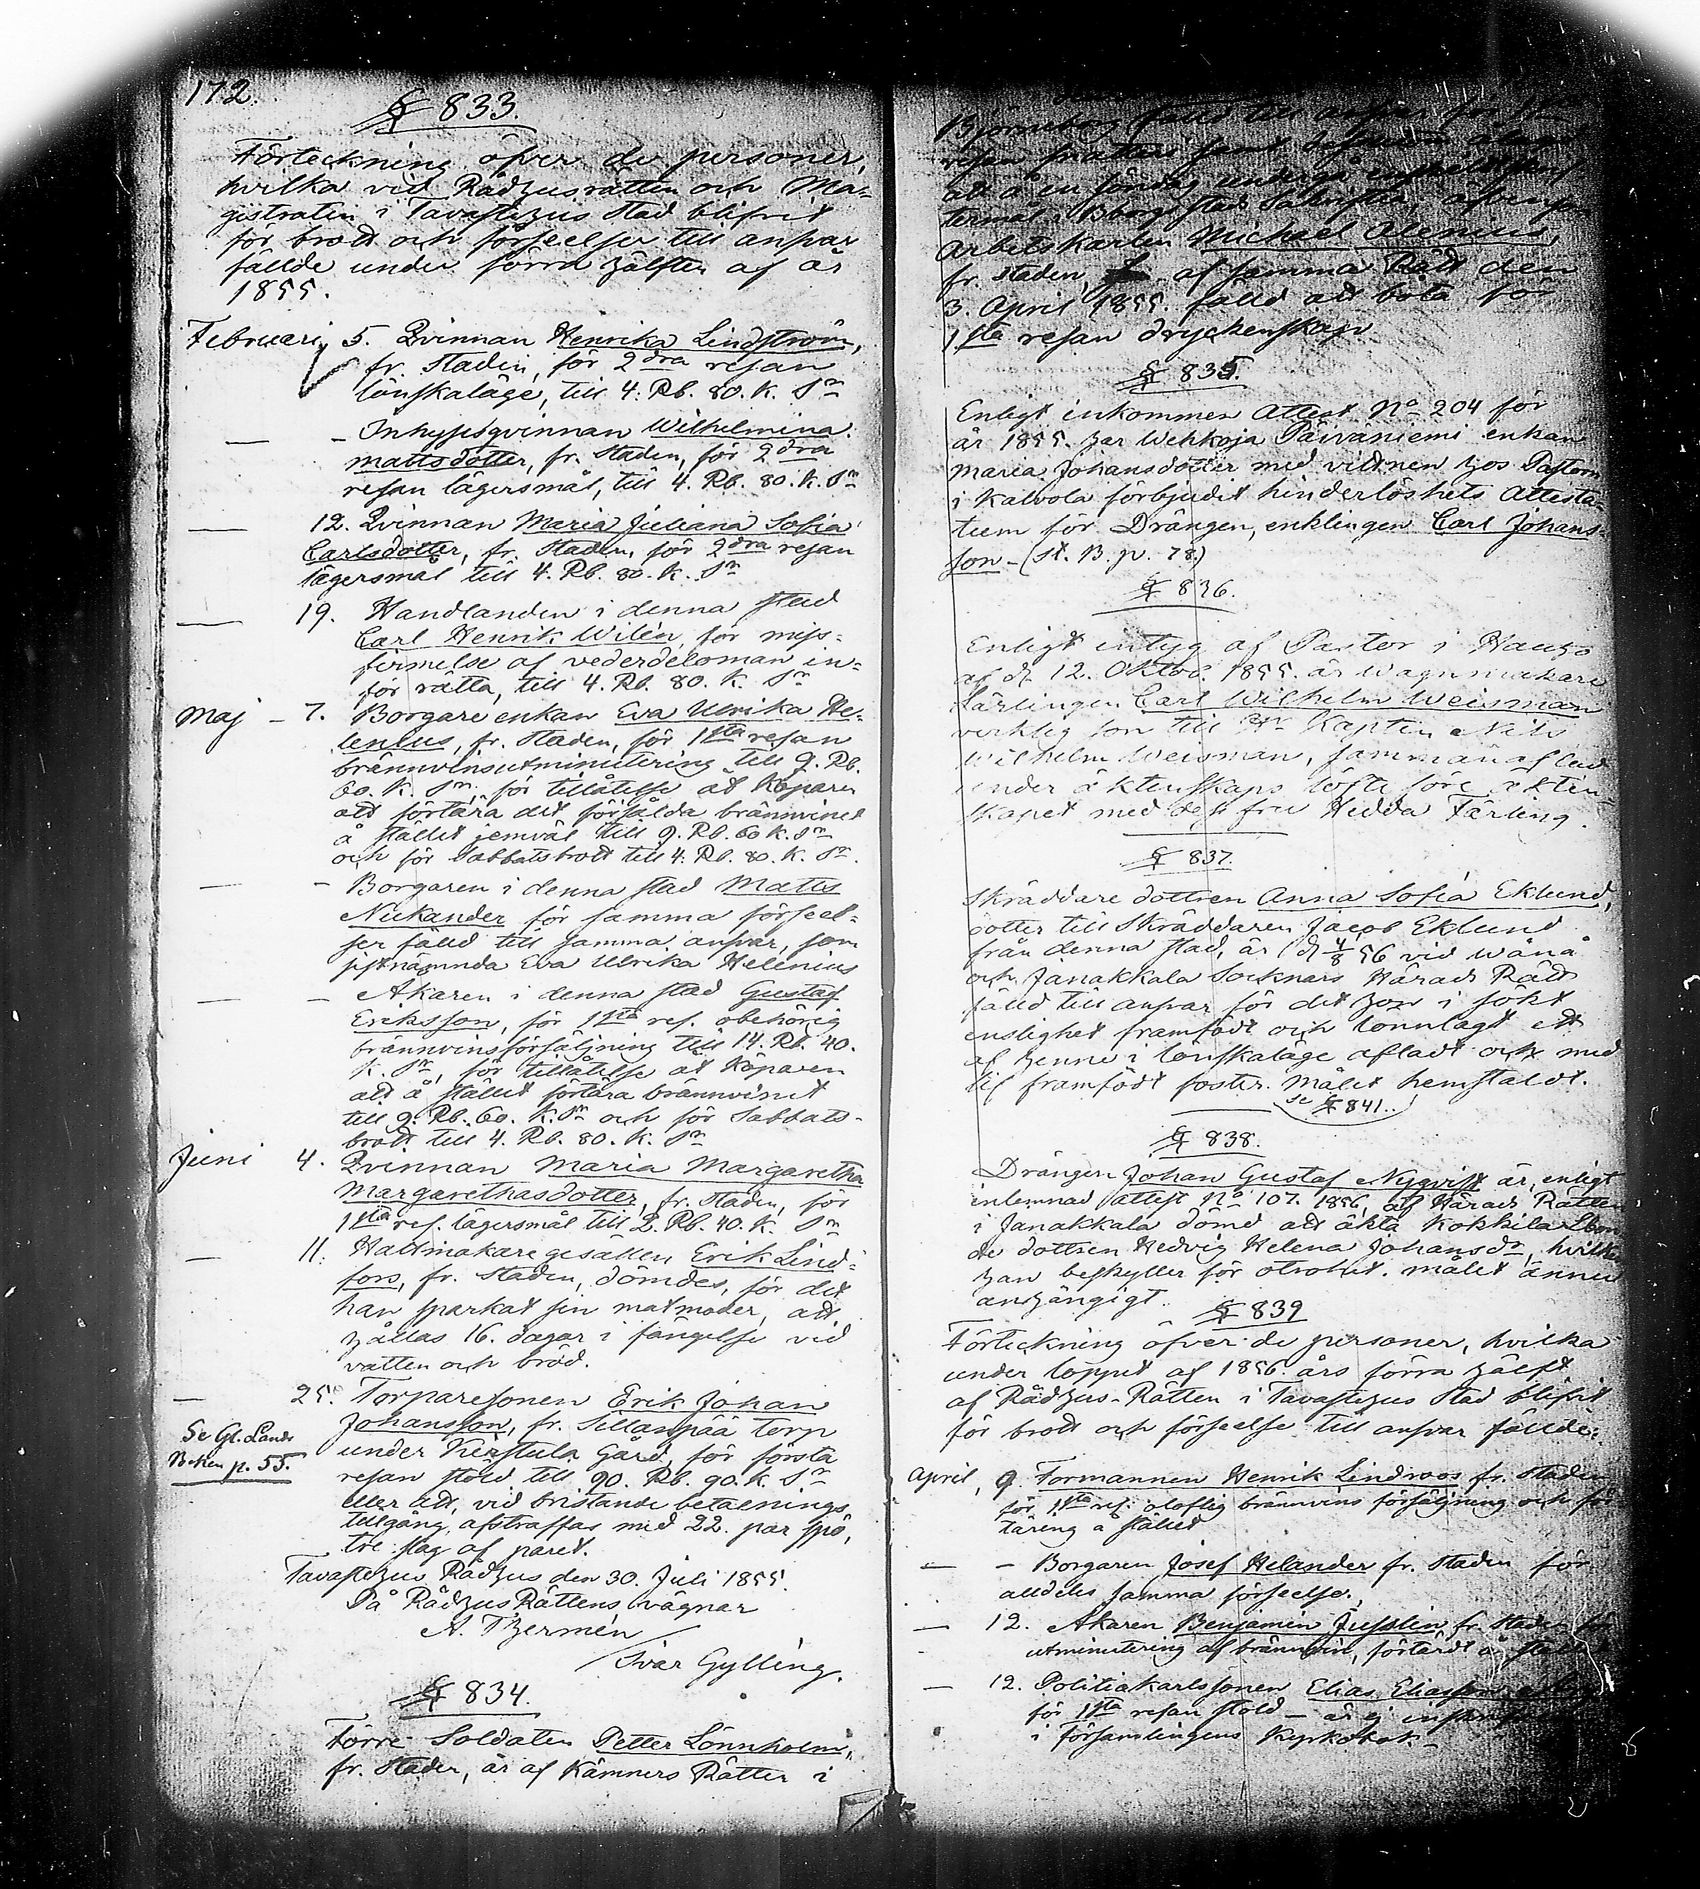 172.
§ 833.
Förteckning öfver de personer,
hvilka vid Rådhusrätten och Ma-
gistraten i Tavastehus Stad blifvit
för brott och förseelser till ansvar
fällde under förra hälften af år
1855.
Februari 5. Qvinnan Henrika Lindström,
fr. Staden, för 2dra resan
lönskaläge, till 4. Rb. 80. K. Sr
— - Inhysesqvinnan Wilhelmina
Mattsdotter, fr. Staden, för 2dra
resan lägersmål, till 4. Rb. 80. K. Sr
— 12. Qvinnan Maria Juliana Sofia
Carlsdotter, fr. Staden, för 2dra resan
lägersmål till 4. Rb. 80. K. Sr
— 19. Handlanden i denna stad
Carl Henrik Wilén, för miss-
firmelse af vederdeloman in-
för rätta, till 4. Rb. 80. K. Sr
Maj - 7. Borgare enkan Eva Ulrika He-
lenius, fr. Staden, för 1sta resan
brännvinsutminutering till 9. Rb.
60. K. Sr, för tillåtelse åt Köparen
att förtära det försålda brännvinet
å stället jemväl till 9. Rb. 60 K. Sr
och för Sabbatsbrott till 4. Rb. 80. K. Sr.
— - Borgaren i denna stad Matts
Nickander för samma förseel-
ser fälld till samma ansvar, som
sistnämnda Eva Ulrika Helenius
— - Akaren i denna stad Gustaf
Eriksson, för 1sta res. obehörig
brännvinsförsäljning till 14. Rb. 40.
K. Sr, för tillåtelse åt Köparen
att å stället förtära brännvinet
till 9. Rb. 60. K. Sr och för Sabbats-
brott till 4. Rb. 80. K. Sr
Juni 4. Qvinnan Maria Margaretha
Margarethasdotter, fr. Staden, för
1sta res. lägersmål till 2. Rb. 40. K. Sr
— 11. Hattmakaregesällen Erik Lind-
fors, fr. Staden, dömdes, för det
han sparkat sin matmoder, att
hållas 16. dagar i fängelse vid
vatten och bröd.
— 25. Torparesonen Erik Johan
Johansson, fr. Sillanpää torp
Se Gl. Lands
Boken p. 55.
under Gård, för första
resan stöld till 90. Rb. 90. K. Sr
eller att, vid bristande betalnings
tillgång, afstraffas med 22. par spö,
tre slag af paret.
Tavastehus Rådhus den 30. Juli 1855.
På Rådhus Rättens vägnar
A. Thermén
/Ivar Gylling.
§ 834.
Förre Soldaten Petter Lönnholm,
fr. Staden, är af Kämners Rätten i
Björneborg fälld till ansvar för
resan
att å en söndag undergå
termål i Bborgs stads Sakristia, äfvensom
Arbetskarlen Michael Alenius,
fr. staden, af samma Rätt den
3. April 1855. fälld att böta för
1sta resan dryckenskap
§ 835.
Enligt inkommen Attest No 204 för
år 1855. har Wehkoja Päiväniemi enkan
Maria Johansdotter med vittnen hos Pastorn
i Kalvola förbjudit hinderlöshets Attesta-
tum för Drängen, enklingen Carl Johans-
son - (St. B. p. 78.)
§ 836.
Enligt intyg af Pastor i Hauho
af d. 12. Oktob. 1855. är Wagnmakare
Lärlingen Carl Wilhelm Weisman
verklig son till Hr Kapten Nils
Wilhelm Weisman, samman aflad
under äktenskaps löfte före äkten-
skapet med dess fru Hedda Färling.
§ 837.
Skräddare dottren Anna Sofia Eklund,
dotter till Skräddaren Jacob Eklund
från denna stad, är d 4/8 56 vid Wånå
och Janakkala Socknars Härads Rätt
fälld till ansvar för det hon i sökt
enslighet framfödt och lönnlagt ett
af henne i lönskaläge afladt och med
lif framfödt foster. Målet hemstäldt.
se § 841.
§ 838.
Drängen Johan Gustaf Nyqvist är, enligt
inlemnad attest No 107. 1856, af Härads Rätten
i Janakkala dömd att äkta Kokkila
de dottren Hedvig Helena Johansdr, hvilken
han beskyller för otrohet. Målet ännu
anhängigt.
§ 839
Förteckning öfver de personer, hvilka
under loppet af 1856. års förra hälft
af Rådhus-Rätten i Tavastehus Stad blifvit
för brott och förseelse till ansvar fällde:
April, 9. Formannen Henrik Lindroos fr. staden
för 1sta res. oloflig bränvins försäljning och för-
täring å stället
— - Borgaren Josef Helander fr. Staden för
alldeles samma förseelse.
— 12. Akaren Benjamin Jusslin fr. Staden för
utminutering af brännvin, förtärdt å stället
— 12. Politiekarlssonen Elias Eliasson
för 1sta resan stöld - är ej
i församlingens Kyrkobok -